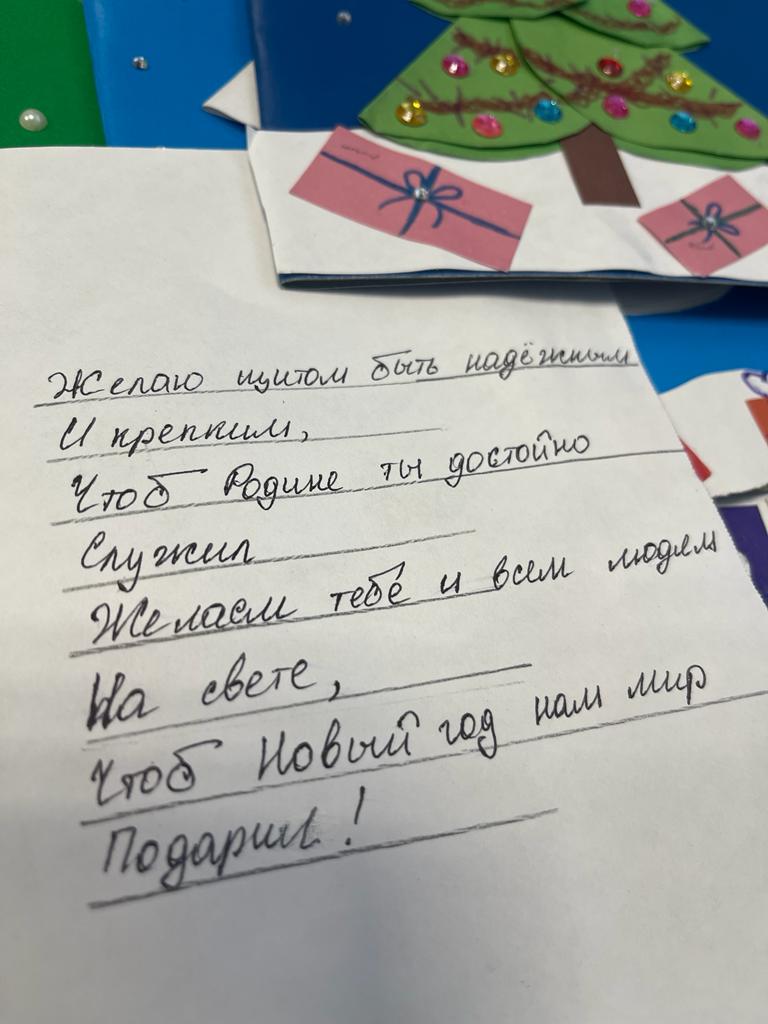 Желаю щитом быть надёжным
И крепким,
Чтоб Родине ты достойно
Служил
Желаем тебе и всем людям
На свете,
Чтоб Новый год нам мир
Подарил!